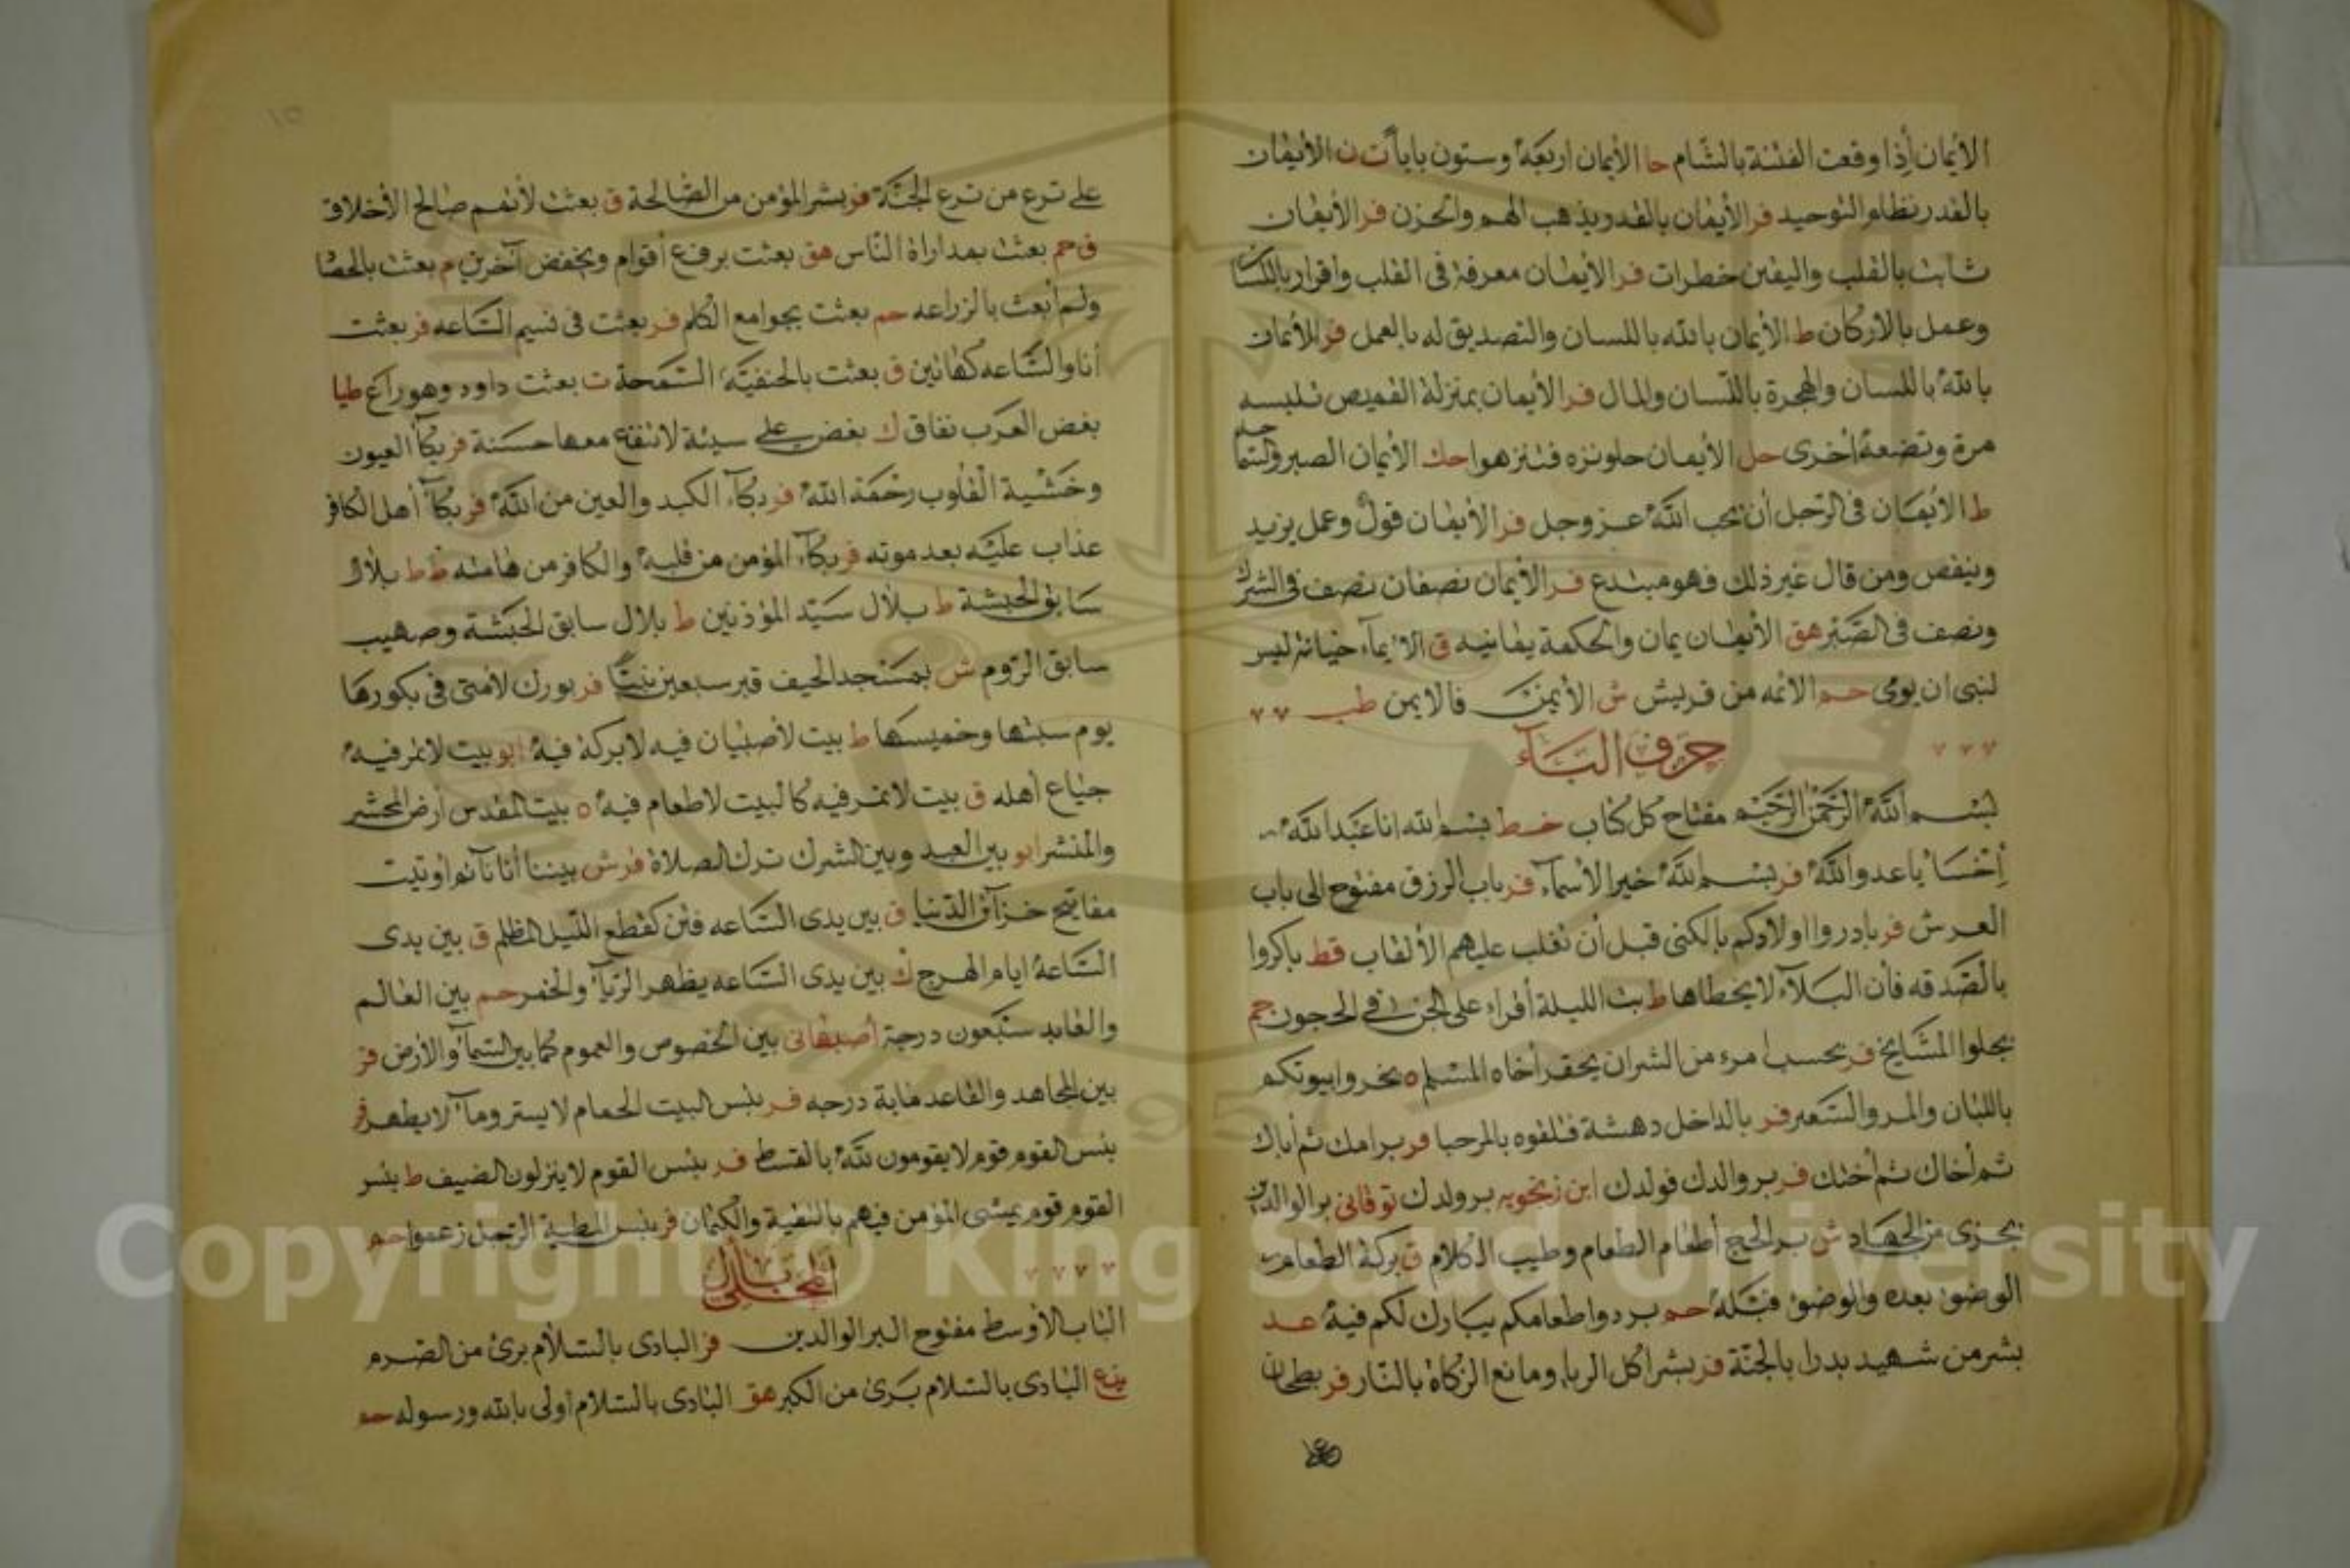 الأيمان إذا وقعت الفتنة بالشام حا الأيمان اربعة وستون باباً ت ن الأيمان
بالقدر نظام التوحيد فر الأيمان بالقدر يذهب الهم والحزن فر الأيمان
ثابت بالقلب واليقين خطرات فر الأيمان معرفة في القلب واقرار باللسان
وعمل بالاركان ط الأيمان بالله باللسان والتصديق له بالعمل فر الأيمان
بالله باللسان والهجرة باللسان والمال فر الأيمان بمنزلة القميص تلبسه
مرة وتضعه أخرى حل الأيمان حلو نزه فنزهوا حك الأيمان الصبر والسما حم
ط الأيمان في الرجل أن يحب الله عز وجل فر الأيمان قول وعمل يزيد
وينقص ومن قال غير ذلك فهو مبتدع فر الأيمان نصفان نصف في الشرك
ونصف في الصبر هق الأيمان يمان والحكمة يمانيه ق الايمآء خيانة ليس
لنبي ان يومى حم الائمه من قريش ش الأيمن فالايمن طب
حرف البآء
بسم الله الرحمن الرحيم مفتاح كل كتاب خط بسم الله انا عبد الله
إخسأ يا عدو الله فر بسم الله خير الأسمآء فر باب الرزق مفتوح الى باب
العرش فر بادروا اولادكم بالكنى قبل أن تغلب عليهم الألقاب قط باكروا
بالصدقه فأن البلآء لا يخطاها ط بت الليلة أقراء على الجن في الحجون حم
بجلوا المشايخ فر بحسب امرء من الشر ان يحقر أخاه المسلم ه بخروا بيوتكم
باللبان والمر والسعتر فر بالداخل دهشة فلقوه بالمرحبا فر بر امك ثم أباك
ثم أخاك ثم أختك فر بر والدك فولدك ابن زنجويه بر ولدك توقانى بر الوالدين
يجزى من الجهاد ش بر الحج أطعام الطعام وطيب الكلام ق بركة الطعام
الوضوء بعده والوضوء قبله حم بردوا طعامكم يبارك لكم فيه عد
بشر من شهيد بدرا بالجنة فر بشر اكل الربا ومانع الزكاة بالنار فر بطحان
على ترع من ترع الجنة فر بشر المؤمن من الصالحة ق بعثت لأتمم صالح الأخلاق
ق حم بعثت بمداراة الناس هق بعثت برفع أقوام ويخفض آخرين م بعثت بالحصا
ولم أبعث بالزراعه حم بعثت بجوامع الكلم فر بعثت في نسيم الساعه فر بعثت
أنا والساعه كهاتين ق بعثت بالحنفيّة السمحة ت بعثت داود وهو راع طيا
بغض العرب نفاق ك بغض علي سيئة لا تنفع معها حسنة فر بكآ العيون
وخشية القلوب رحمة الله فر بكآء الكبد والعين من الله فر بكآ أهل الكافر
عذاب عليه بعد موته فر بكآء المؤمن من قلبه والكافر من هامته ط ط بلال
سابق الحبشة ط بلال سيد المؤذنين ط بلال سابق الحبشة وصهيب
سابق الروم ش بمسجد الحيف قبر سبعين نبيّاً فر بورك لأمتى في بكورها
يوم سبتها وخميسها ط بيت لأصبيان فيه لا بركة فيه ابو بيت لا تمر فيه
جياع أهله ق بيت لا تمر فيه كالبيت لا طعام فيه ه بيت المقدس أرض المحشر
والمنشر ابو بين العبد وبين الشرك ترك الصلاة فر ش بيننا أنا نآئم أوتيت
مفاتيح خزآئن الدنيا ق بين يدى الساعه فتن كقطع الليل المظلم ق بين يدى
الساعة ايام الهرج ك بين يدى الساعه يظهر الربآ والخمر حم بين العالم
والعابد سبعون درجة أصبهانى بين الخصوص والعموم كما بين السمآ والأرض فر
بين المجاهد والقاعد ماية درجه فر بئس البيت الحمام لا يستر ومآء لا يطهر فر
بئس القوم قوم لا يقومون لله بالقسط فر بئس القوم لا ينزلون الضيف ط بئس
القوم قوم يمشى المؤمن فيهم بالتقية والكتمان فر بئس المطية الرجل زعموا حم
المحلى بأل
الباب الأوسط مفتوح البر الوالدين فر البادى بالسلام برئ من الصرم
البادى بالسلام برئ من الكبر هق البادى بالسلام أولى بالله ورسوله حم
Copyright © King Saud University
1957